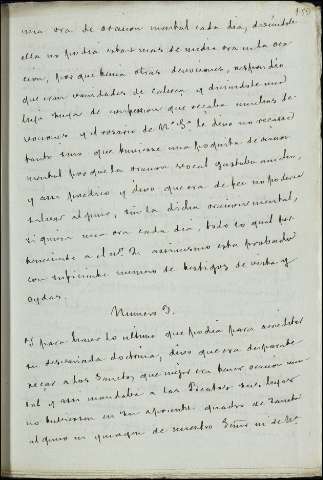 una ora de oracion mental cada dia, diciendole
ella no podia estar mas de media ora en la ora
cion, por que tenia otras devociones, respondio
que eran vanidades de cabeza y diciendole una
hija suya de confession que rezaba muchas de
vociones y el rosario de Nª Sª le dixo no rezase
tanto sino que tuviesse una poquita de oracion
mental porque la oracion vocal gustaba mucho,
y assi predico y dixo que era de fee no poderse
salvar alguno, sin la dicha oracion mental,
siquiera una ora cada dia, todo lo qual per
teneciente a el nº 2 assimismo esta probado
con suficiente numero de testigos de vista y
oydas.
Numero 3.
Y para hacer lo ultimo que podia para acreditar
su desvariada doctrina, dixo que era disparate
rezar a los Santos, que mejor era hacer oracion men
tal y assi mandaba a las Beatas sus hijas
no tubiessen en su aposento quadro de Santo
alguno ni imagen de nuestro Señor ni de Nª